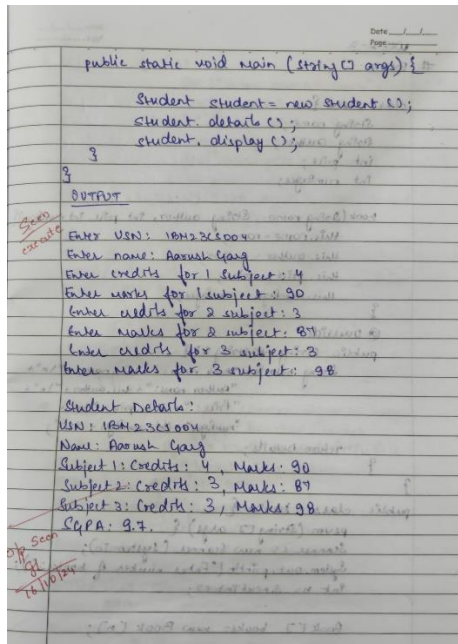 Date __/__/__
Page
public static void main (String [] args) {
Student student = new Student ();
student. details ();
student. display ();
}
}
OUTPUT
Seen
execute
Enter USN: 1BM23CS004
Enter name: Aarush Garg
Enter credits for 1 subject: 4
Enter marks for 1 subject: 90
Enter credits for 2 subject: 3
Enter marks for 2 subject: 87
Enter credits for 3 subject: 3
Enter marks for 3 subject: 98
Student Details:
USN: 1BM23CS004
Name: Aarush Garg
Subject 1: Credits: 4, Marks: 90
Subject 2: Credits: 3, Marks: 87
Subject 3: Credits: 3, Marks: 98
SGPA: 9.7.
o/p Seen
16/10/24